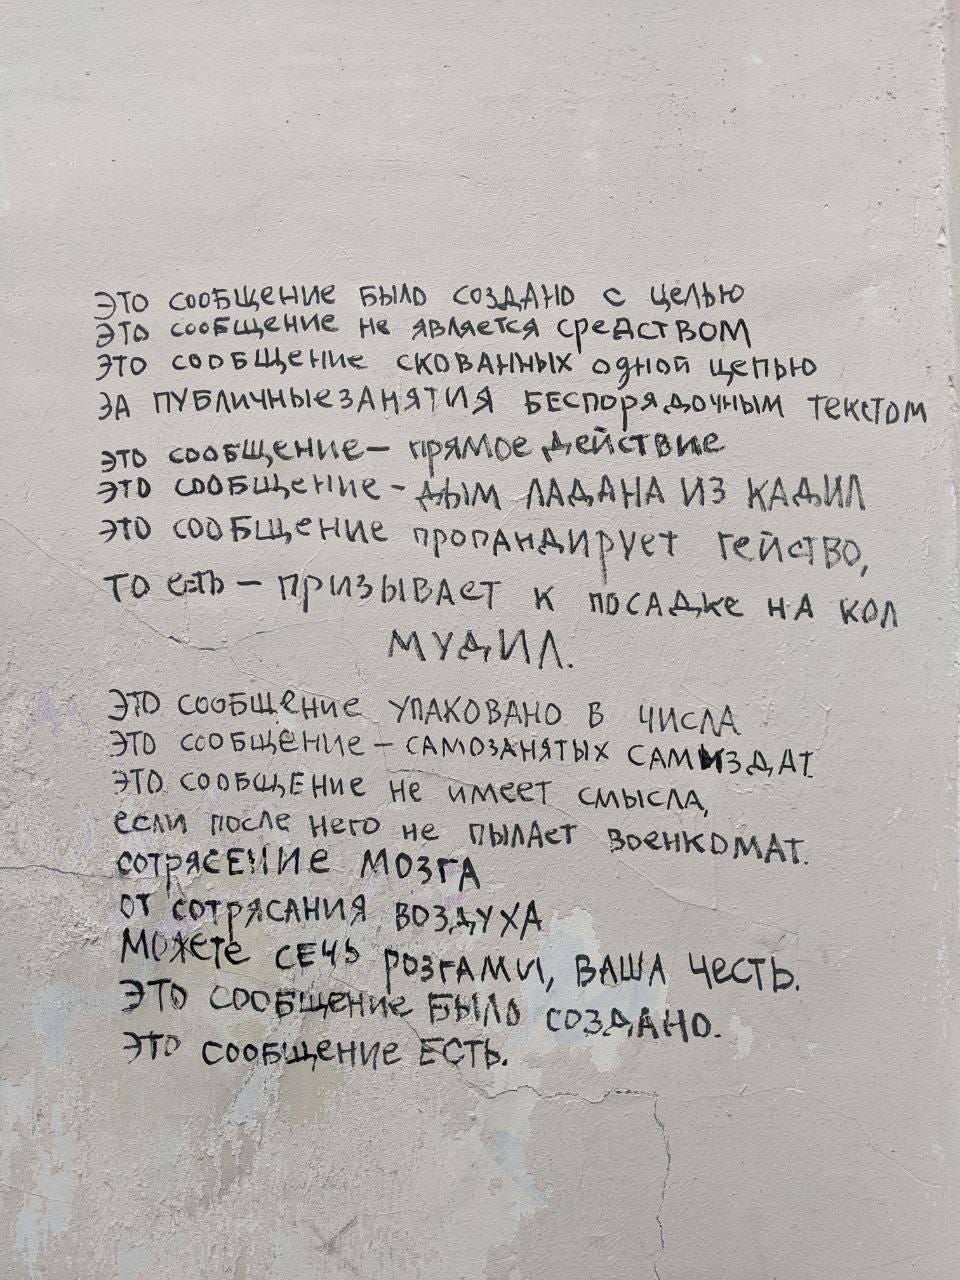 ЭТО СООБЩЕНИЕ БЫЛО СОЗДАНО С ЦЕЛЬЮ
ЭТО СООБЩЕНИЕ НЕ ЯВЛЯЕТСЯ СРЕДСТВОМ
ЭТО СООБЩЕНИЕ СКОВАННЫХ ОДНОЙ ЦЕПЬЮ
ЗА ПУБЛИЧНЫЕ ЗАНЯТИЯ БЕСПОРЯДОЧНЫМ ТЕКСТОМ
ЭТО СООБЩЕНИЕ – ПРЯМОЕ ДЕЙСТВИЕ
ЭТО СООБЩЕНИЕ – ДЫМ ЛАДАНА ИЗ КАДИЛ
ЭТО СООБЩЕНИЕ ПРОПАНДИРУЕТ ГЕЙСТВО,
ТО ЕСТЬ – ПРИЗЫВАЕТ К ПОСАДКЕ НА КОЛ
МУДИЛ.
ЭТО СООБЩЕНИЕ УПАКОВАНО В ЧИСЛА
ЭТО СООБЩЕНИЕ – САМОЗАНЯТЫХ САМЫЗДАТ.
ЭТО СООБЩЕНИЕ НЕ ИМЕЕТ СМЫСЛА,
ЕСЛИ ПОСЛЕ НЕГО НЕ ПЫЛАЕТ ВОЕНКОМАТ.
СОТРЯСЕНИЕ МОЗГА
ОТ СОТРЯСАНИЯ ВОЗДУХА
МОЖЕТЕ СЕЧЬ РОЗГАМИ, ВАША ЧЕСТЬ.
ЭТО СООБЩЕНИЕ БЫЛО СОЗДАНО.
ЭТО СООБЩЕНИЕ ЕСТЬ.